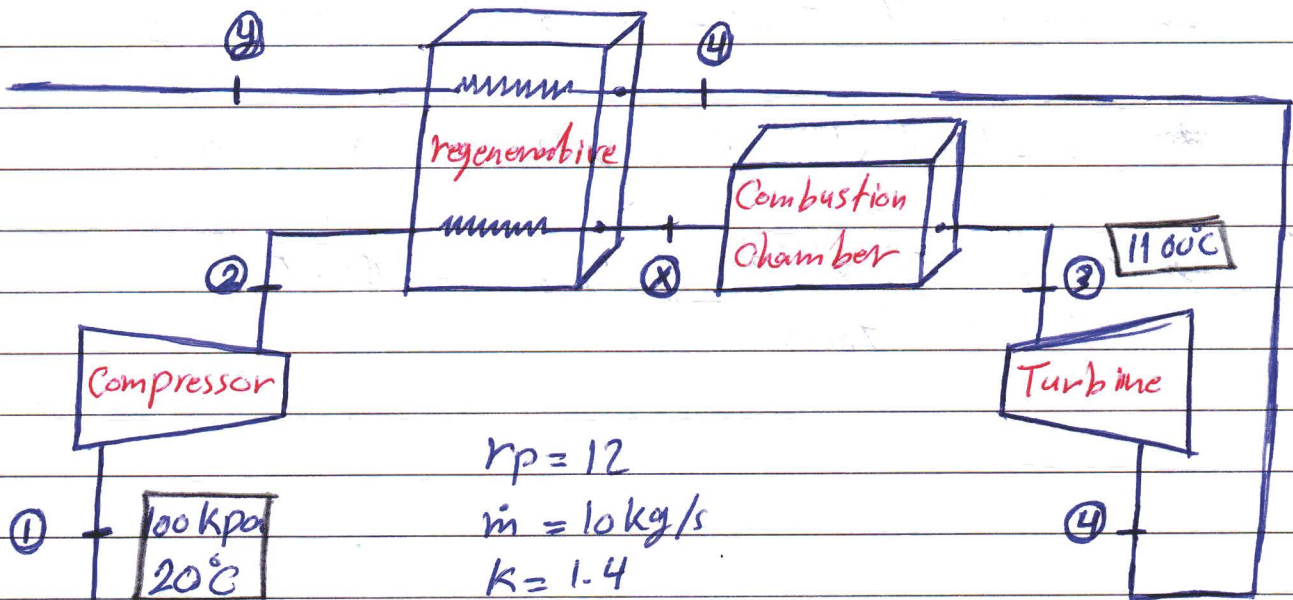 y 4
regenerative
Combustion
Chamber
1100°C
2 x 3
Compressor
Turbine
rp = 12
1
100 kpa
20°C
ṁ = 10 kg/s
4
K = 1.4